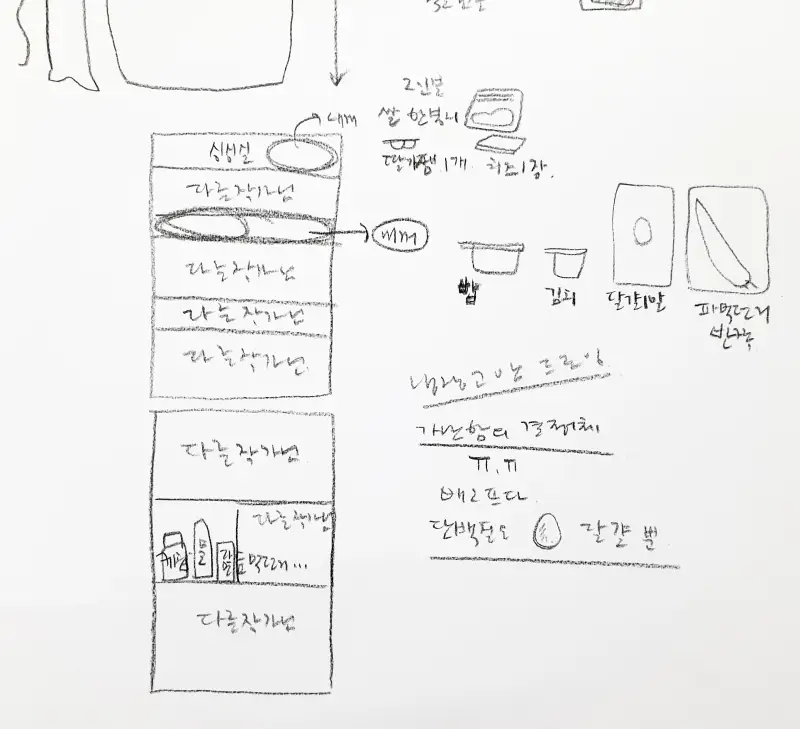 내꺼
2인분
쌀 한봉지
싱싱실
딸기쨈 1개. 치즈1장.
다른작가님
내꺼
다른작가님
밥
김치
달걀1알
다른작가님
다른작가님
냉장고 이름
가난함의 결정체
ㅠ.ㅠ
배고프다.
다른작가님
단백질은
달걀 뿐
다른작가님
물
라면
다른작가님